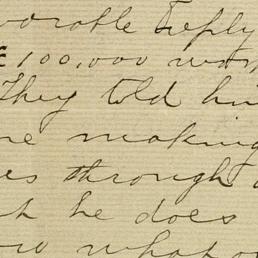 vorable reply
£100,000 wor
They told him
re making
es through
he does
ow what